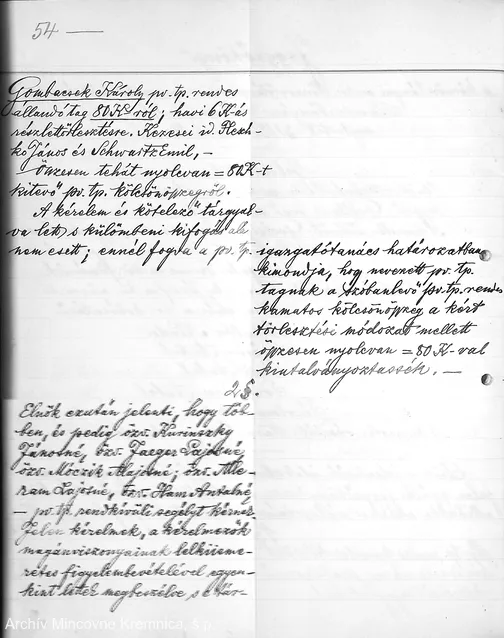 54 —
Gombacsek Károly pv. tp. rendes
állandó tag 80 K-ról; havi 6 K-ás
részlettörlesztésre. Kezesei id. Plesh-
kó János és Schwartz Emil, -
Összesen tehát nyolcvan = 80 K-t
kitevő pv. tp. kölcsönöszegről.
A kérelem és kötelező tárgyal-
va lett s külömbeni kifogás alá
nem esett; ennél fogva a pv. tp.
igazgatótanács határozatban
kimondja, hogy nevezett pv. tp.
tagnak a szóbanlevő pv. tp. rendes
kamatos kölcsönöszeg a kért
törlesztési módozat mellett
öszesen nyolcvan = 80 K-val
kiutalványoztassék. —
2 §.
Elnök ezután jelenti, hogy töb-
ben, és pedig özv. Kurinszky
Jánosné, özv. Jaeger Lajosné,
özv. Móczik Alajosné; özv.
Lajosné, özv. Ham Antalné
— pv. tp. rendkívüli segélyt kérnek
Jelen kérelmek, a kérelmezők
magánviszonyainak lelkiisme-
retes figyelembevételével egyen-
kint lettek megbeszélve s
Archív Mincovne Kremnica, š.p.